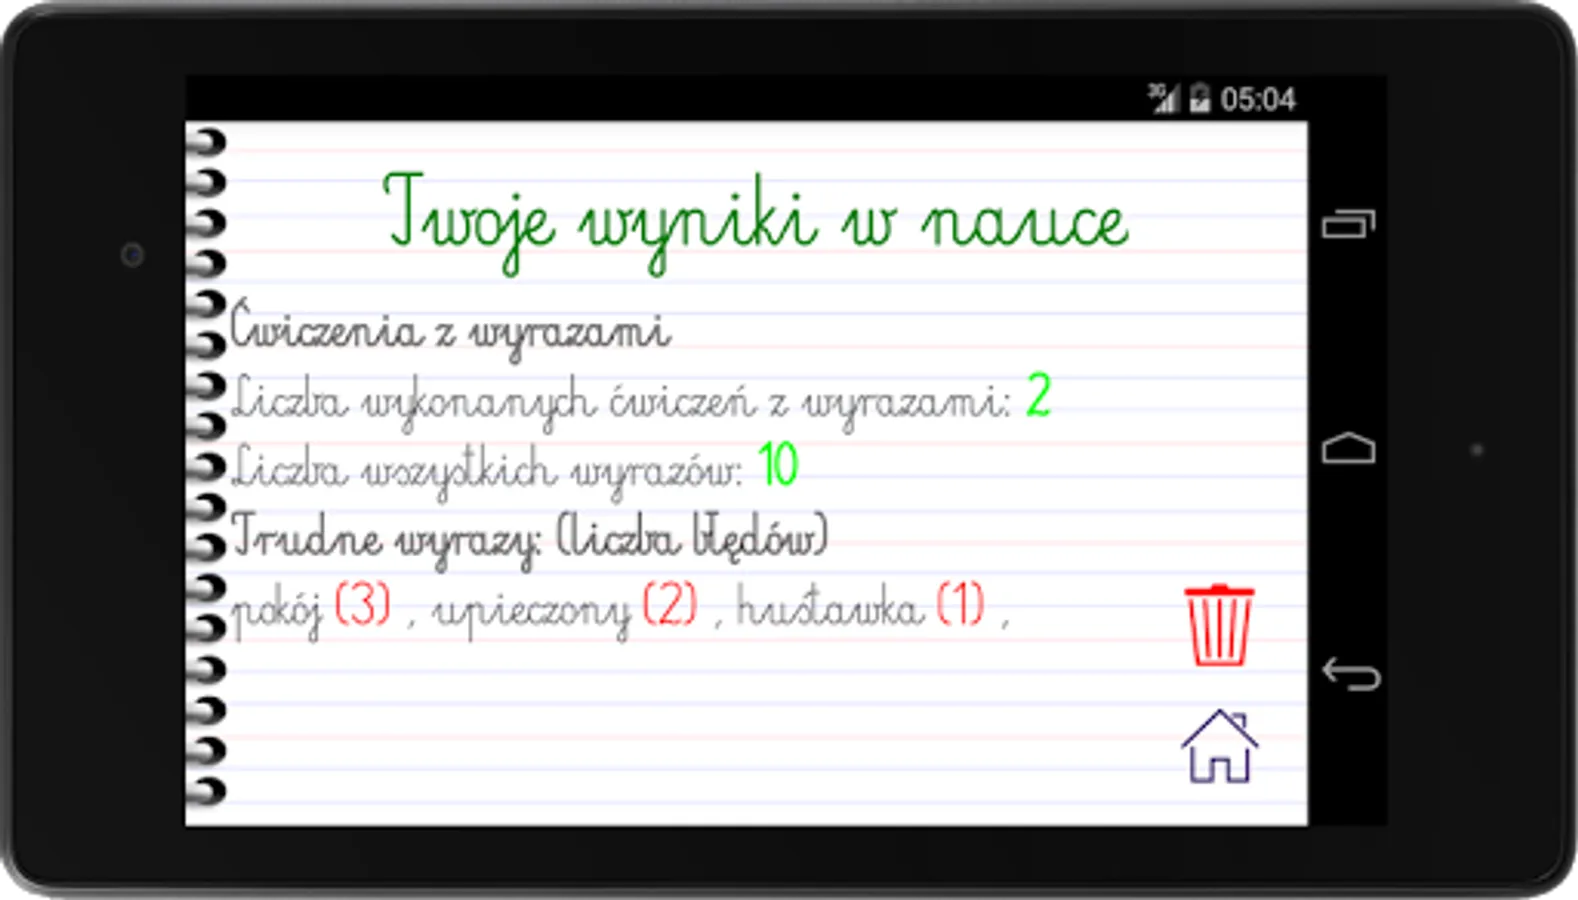 3G 05:04
Twoje wyniki w nauce
Ćwiczenia z wyrazami
Liczba wykonanych ćwiczeń z wyrazami: 2
Liczba wszystkich wyrazów: 10
Trudne wyrazy: (liczba błędów)
pokój (3) , upieczony (2) , hustawka (1) ,